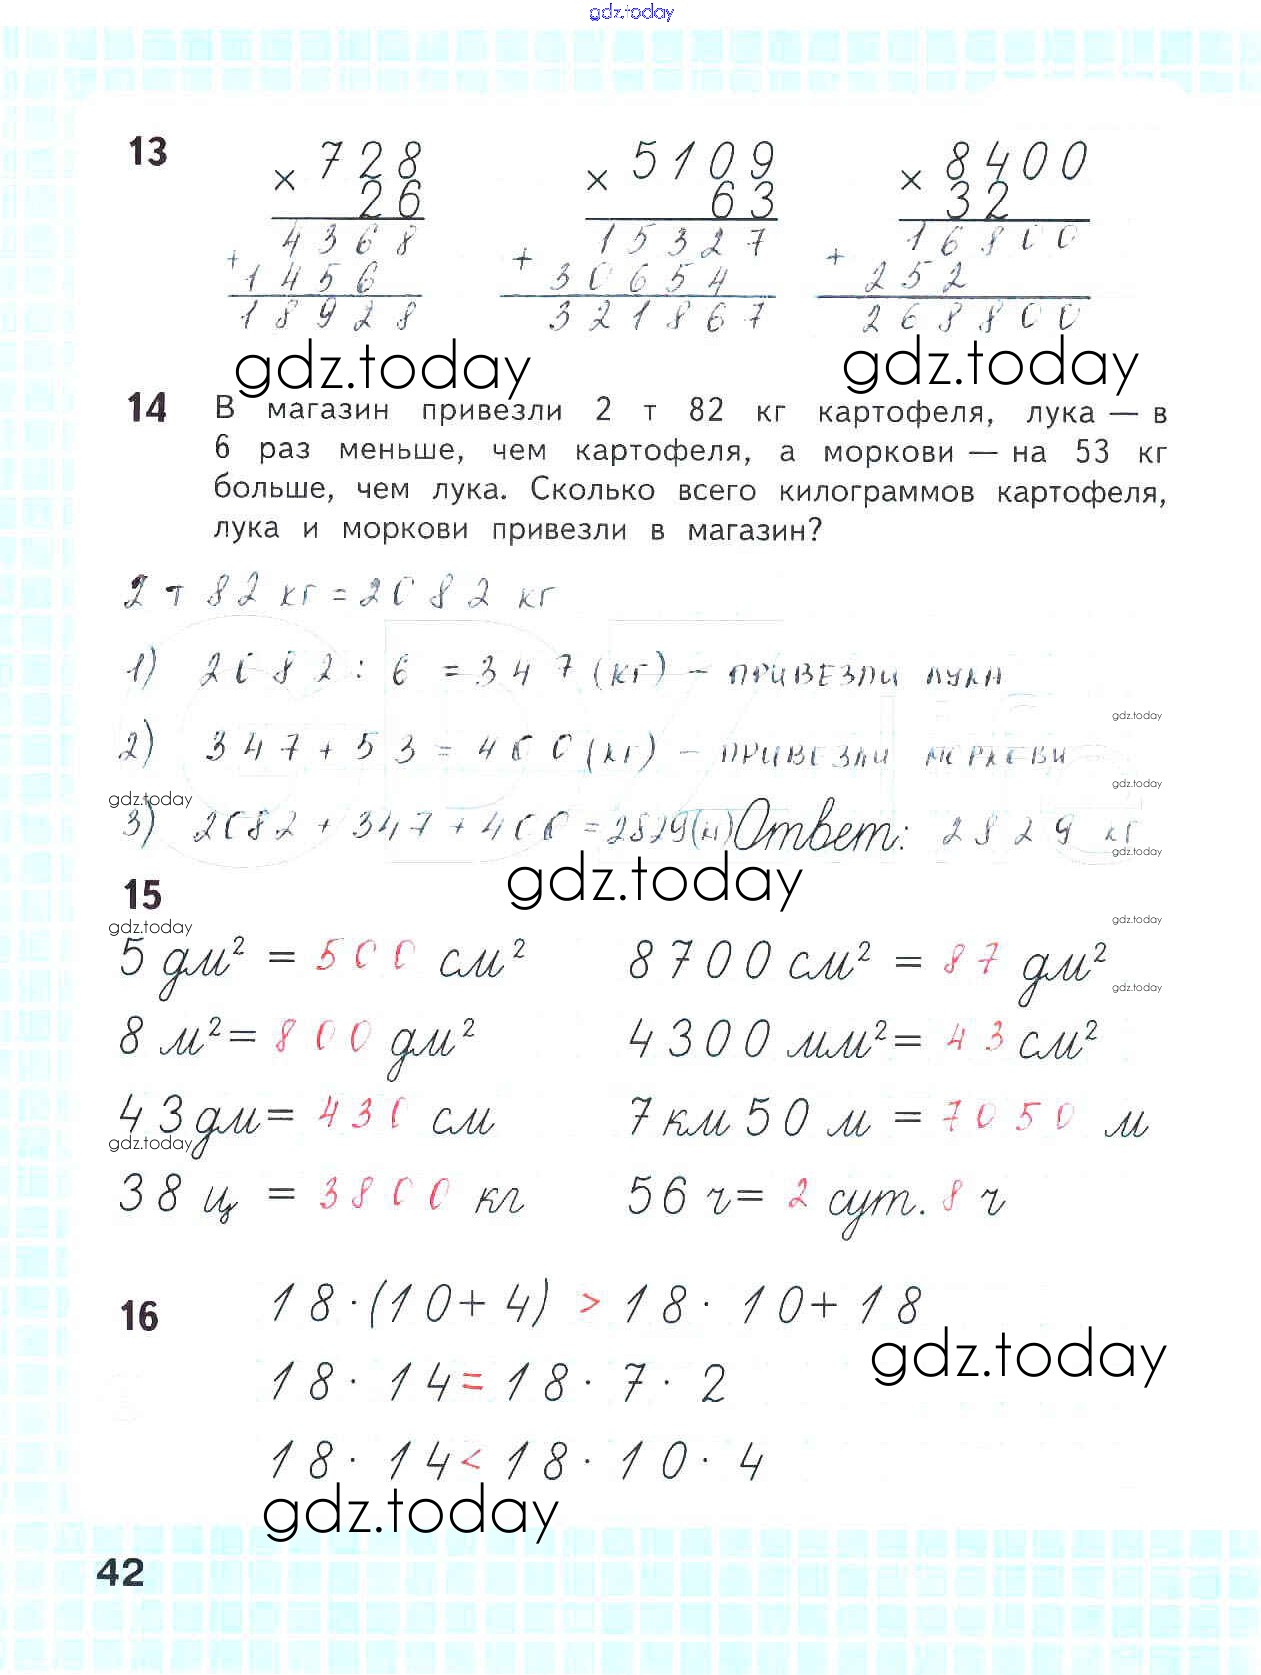 gdz.today
13
× 728
26
+ 4368
1456
18928
× 5109
63
+ 15327
30654
321867
× 8400
32
+ 16800
252
268800
gdz.today
gdz.today
14 В магазин привезли 2 т 82 кг картофеля, лука — в
6 раз меньше, чем картофеля, а моркови — на 53 кг
больше, чем лука. Сколько всего килограммов картофеля,
лука и моркови привезли в магазин?
2 т 82 кг = 2082 кг
1) 2082 : 6 = 347 (кг) – привезли лука
gdz.today
2) 347 + 53 = 400 (кг) – привезли моркови
gdz.today
gdz.today
3) 2082 + 347 + 400 = 2829 (кг) Ответ: 2829 кг
gdz.today
gdz.today
15
gdz.today
gdz.today
5 дм² = 500 см² 8700 см² = 87 дм²
gdz.today
8 м² = 800 дм² 4300 мм² = 43 см²
43 дм = 430 см 7 км 50 м = 7050 м
gdz.today
38 ц = 3800 кг 56 ч = 2 сут. 8 ч
16 18 · (10 + 4) > 18 · 10 + 18
gdz.today
18 · 14 = 18 · 7 · 2
18 · 14 < 18 · 10 · 4
gdz.today
42